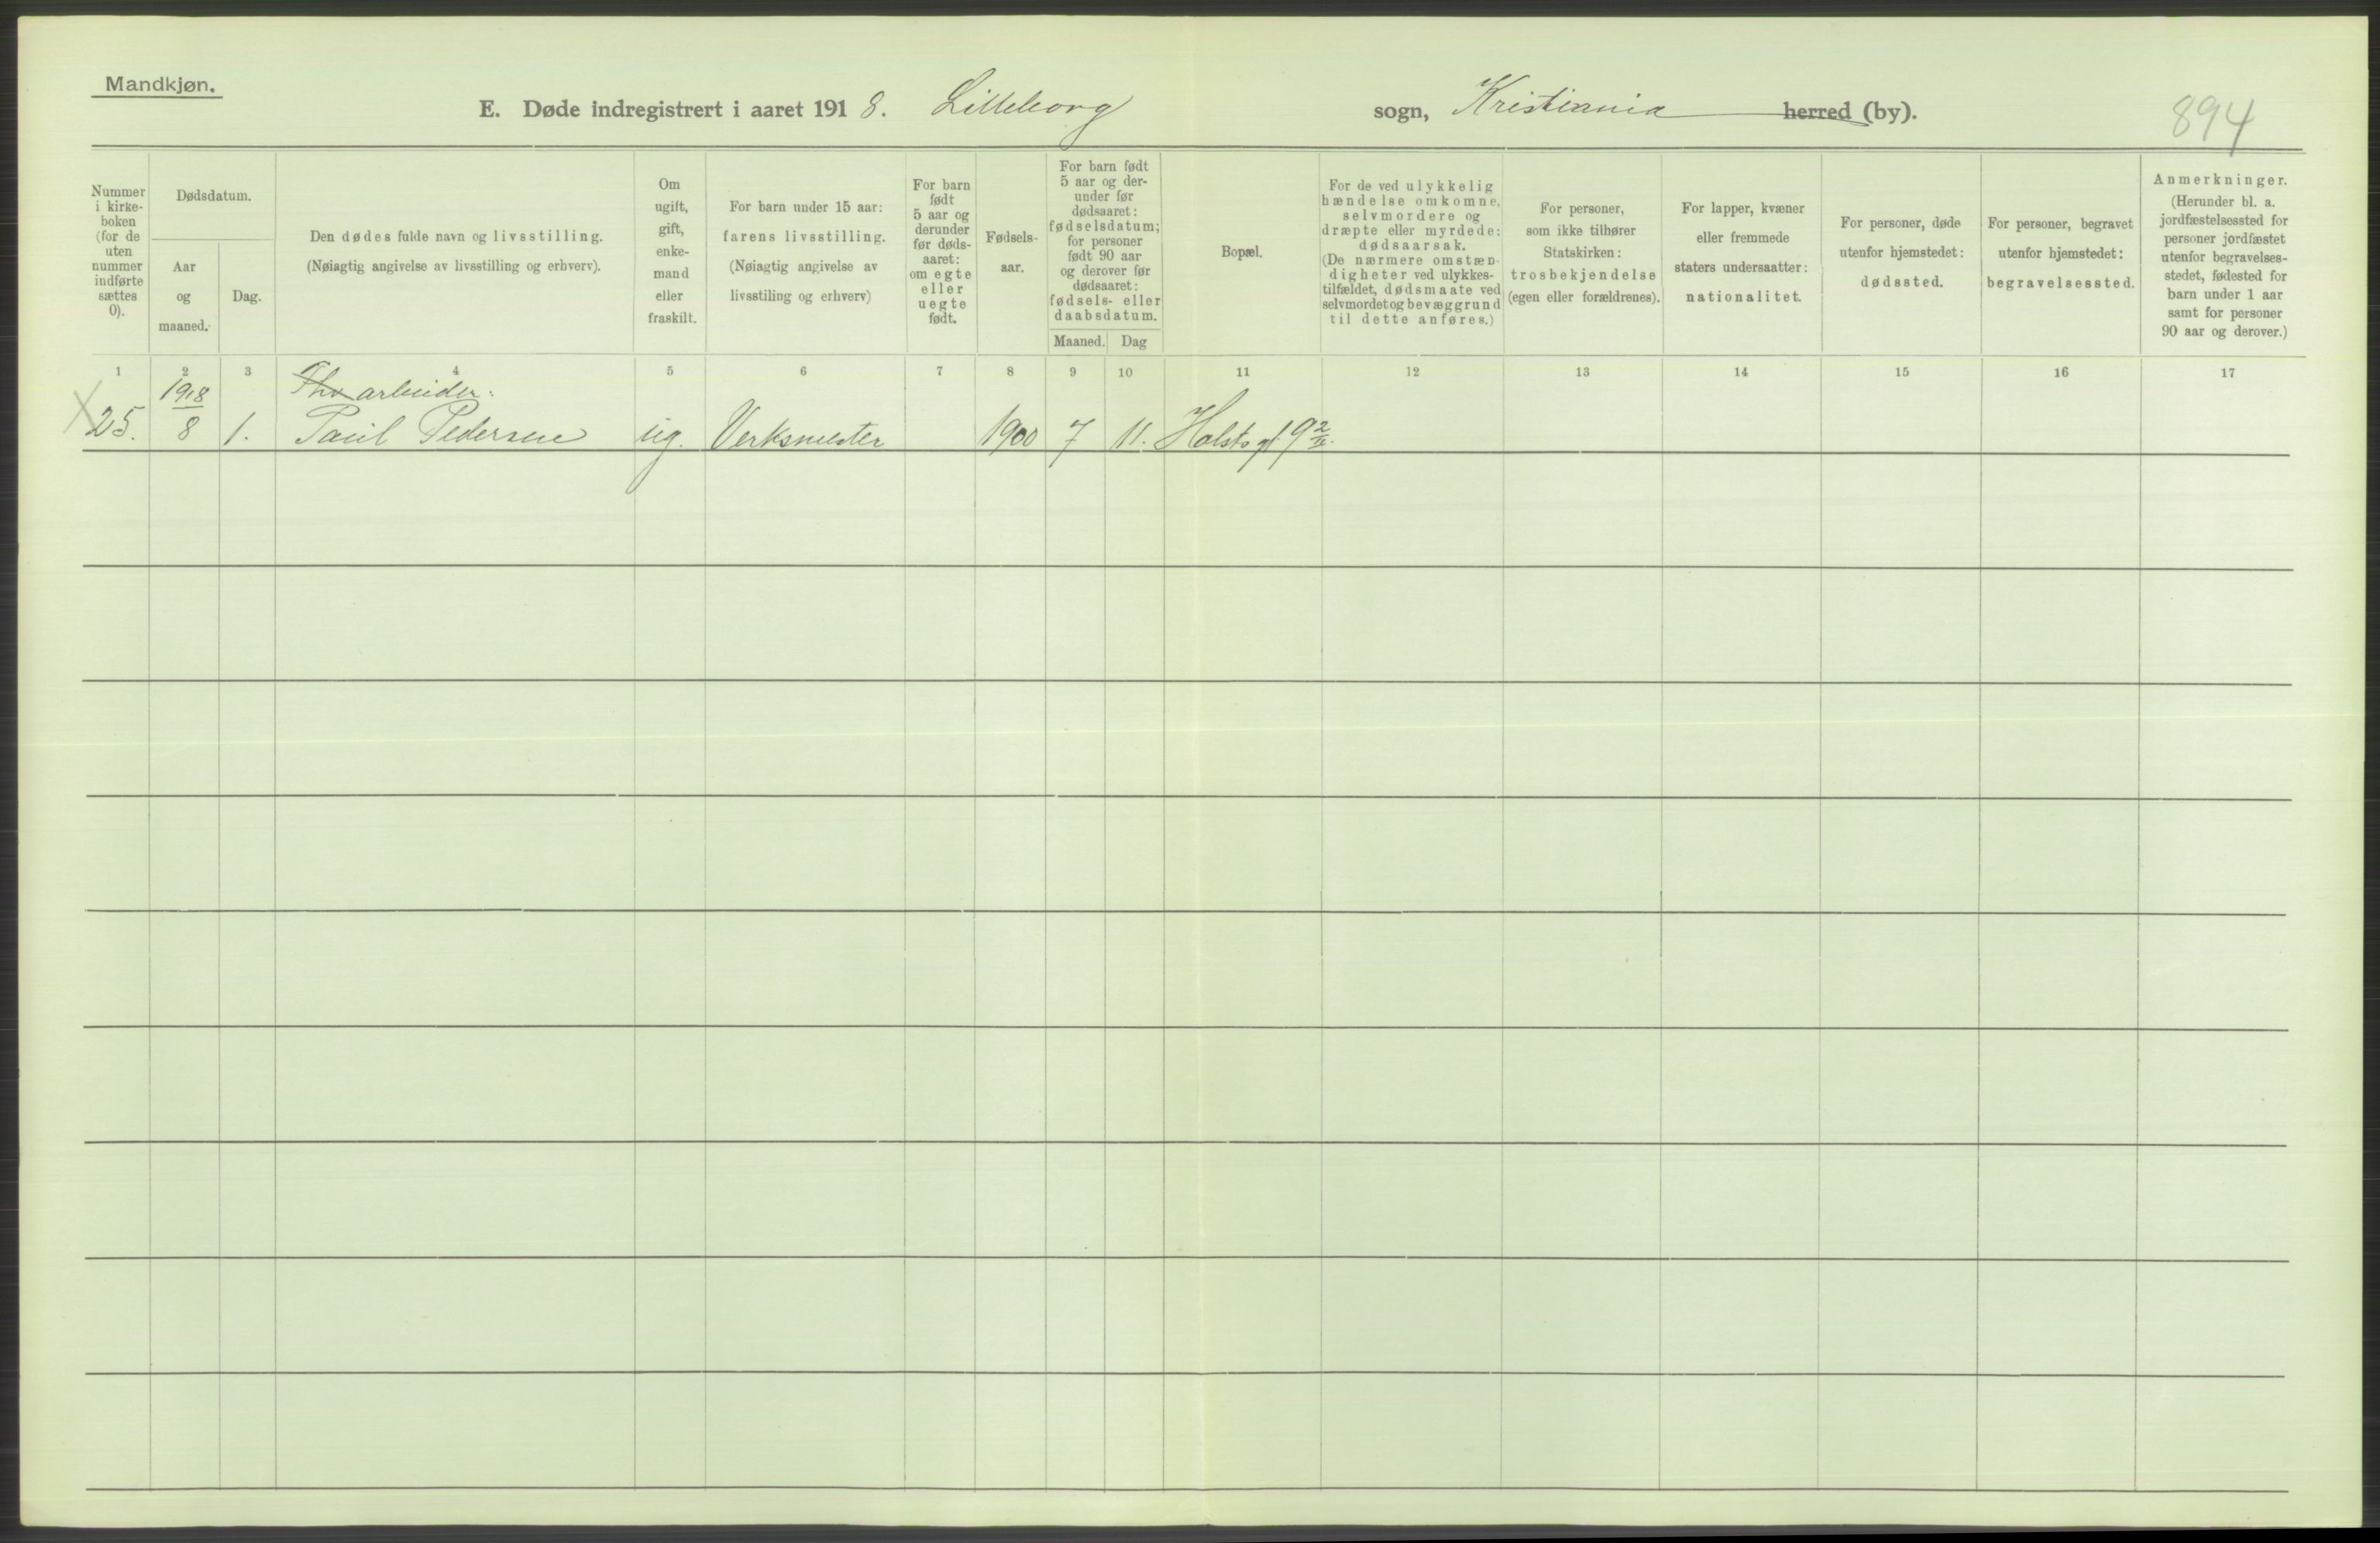 Mandkjøn.
E. Døde indregistrert i aaret 1918. Lilleborg sogn, Kristiania herred (by).
894
Nummer
i kirke-
boken
(for de
uten
nummer
indførte
sættes
0).
Dødsdatum.
Aar
og
maaned.
Dag.
Den dødes fulde navn og livsstilling.
(Nøiagtig angivelse av livsstilling og erhverv).
Om
ugift,
gift,
enke-
mand
eller
fraskilt.
For barn under 15 aar:
farens livsstilling.
(Nøiagtig angivelse av
livsstiling og erhverv)
For barn
født
5 aar og
derunder
før døds-
aaret:
om egte
eller
uegte
født.
Fødsels-
aar.
For barn født
5 aar og der-
under før
dødsaaret:
fødselsdatum;
for personer
født 90 aar
og derover før
dødsaaret:
fødsels- eller
daabsdatum.
Maaned. Dag
Bopæl.
For de ved ulykkelig
hændelse omkomne,
selvmordere og
dræpte eller myrdede:
dødsaarsak.
(De nærmere omstæn-
digheter ved ulykkes-
tilfældet, dødsmaate ved
selvmordet og bevæggrund
til dette anføres.)
For personer,
som ikke tilhører
Statskirken:
trosbekjendelse
(egen eller forældrenes).
For lapper, kvæner
eller fremmede
staters undersaatter:
nationalitet.
For personer, døde
utenfor hjemstedet:
dødssted.
For personer, begravet
utenfor hjemstedet:
begravelsessted.
Anmerkninger.
(Herunder bl. a.
jordfæstelsessted for
personer jordfæstet
utenfor begravelses-
stedet, fødested for
barn under 1 aar
samt for personer
90 aar og derover.)
1 2 3 4 5 6 7 8 9 10 11 12 13 14 15 16 17
1918 arbeider.
25. 8 1. Paul Pedersen ug. Verksmester 1900 7 11. Holsts gt. 9